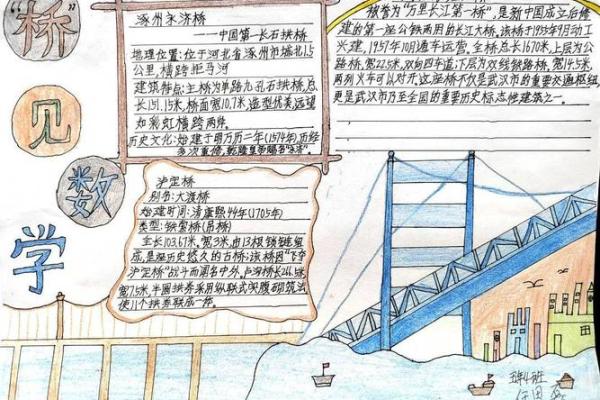 “桥”
见
数
学
涿州永济桥
——中国第一长石拱桥
地理位置:位于河北省涿州市城北1.5
公里,横跨拒马河
建筑特点:主桥为单路九孔石拱桥,总
长151.15米,桥面宽10.7米,造型优美远望
如彩虹横跨两岸。
历史文化:始建于明万历二年(1574年)历经
多次重修,乾隆皇帝赐名
被誉为“万里长江第一桥”,是新中国成立后修
建的第一座公铁两用的长江大桥,该桥于1955年9月动工
兴建,1957年10月通车运营。全桥总长1670米,上层为公
路桥,宽22.5米,双向四车道;下层为双线铁路桥,宽14.5米,
两列火车可以对开。这座桥不仅是武汉市的重要交通枢纽,
更是武汉市乃至全国的重要历史标志性建筑之一。
泸定桥
别名:大渡桥
始建时间:清康熙44年(1705年)
类型:铁索桥(吊桥)
全长103.67米,宽3米,由13根锁链组
成,是座历史悠久的古桥;该桥因“飞夺
泸定桥”战斗而闻名中外,卢沟桥长266.5米
宽7.5米,半圆拱券采用纵联式实腹砌筑法
使11个拱券联成一体。
五年4班